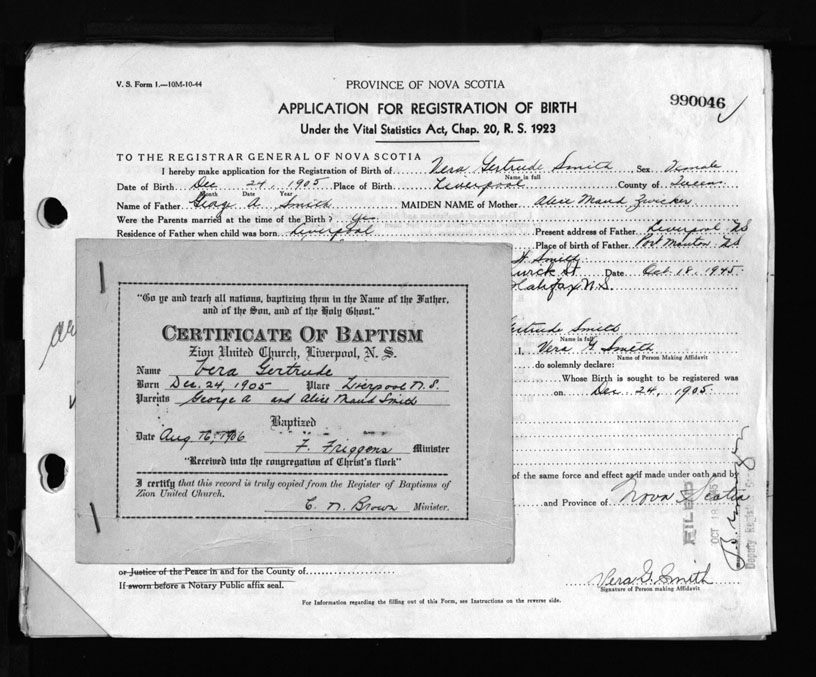 V. S. Form 1.—10M-10-44
PROVINCE OF NOVA SCOTIA
990046
APPLICATION FOR REGISTRATION OF BIRTH
Under the Vital Statistics Act, Chap. 20, R. S. 1923
TO THE REGISTRAR GENERAL OF NOVA SCOTIA
I hereby make application for the Registration of Birth of Vera Gertrude Smith Sex Female
Name in full
Date of Birth Dec 24, 1905 Place of Birth Liverpool County of Queens
Month Date Year
Name of Father George A. Smith MAIDEN NAME of Mother Alice Maud Zwicker
Were the Parents married at the time of the Birth? Yes
Residence of Father when child was born Liverpool Present address of Father Liverpool NS
Place of birth of Father Port Mouton NS
Smith
St Date Oct 18, 1945
Halifax N.S.
"Go ye and teach all nations, baptizing them in the Name of the Father,
and of the Son, and of the Holy Ghost."
CERTIFICATE OF BAPTISM
Zion United Church, Liverpool, N. S.
Name Vera Gertrude
Born Dec. 24, 1905 Place Liverpool N.S.
Parents George A and Alice Maud Smith
Baptized
Date Aug 16, 1906 F. Friggens Minister
"Received into the congregation of Christ's flock"
I certify that this record is truly copied from the Register of Baptisms of
Zion United Church.
C. N. Brown Minister.
Gertrude Smith
Name in full
I, Vera G Smith
Name of Person Making Affidavit
do solemnly declare:
Whose Birth is sought to be registered was
on Dec 24, 1905
of the same force and effect as if made under oath and by
and Province of Nova Scotia
FILED
OCT 18 1945
Deputy Registrar
or Justice of the Peace in and for the County of
If sworn before a Notary Public affix seal.
Vera G. Smith
Signature of Person making Affidavit
For Information regarding the filling out of this Form, see Instructions on the reverse side.